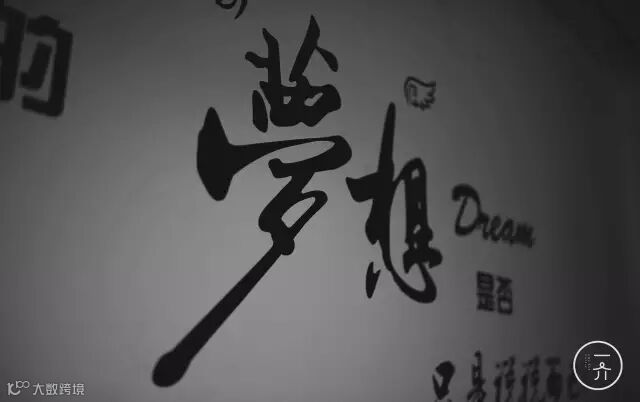 的
夢想
Dream
是否
只是说说而
大数跨境